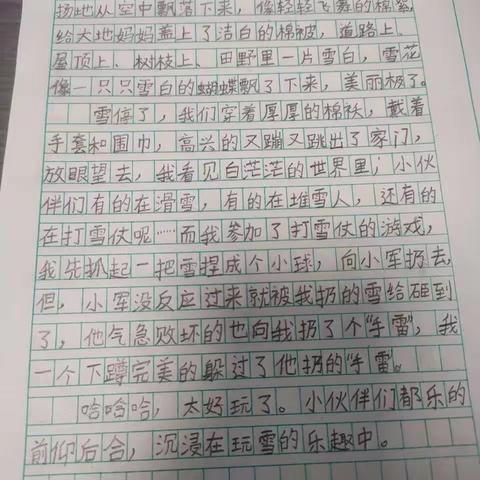 扬地从空中飘落下来，像轻轻飞舞的棉絮，
给大地妈妈盖上了洁白的棉被，道路上、
屋顶上、树枝上、田野里一片雪白，雪花
像一只只雪白的蝴蝶飘了下来，美丽极了。
雪停了，我们穿着厚厚的棉袄，戴着
手套和围巾，高兴的又蹦又跳出了家门，
放眼望去，我看见白茫茫的世界里；小伙
伴们有的在滑雪，有的在堆雪人，还有的
在打雪仗呢……而我参加了打雪仗的游戏，
我先抓起一把雪捏成个小球，向小军扔去，
但，小军没反应过来就被我扔的雪给砸到
了，他气急败坏的也向我扔了个“手雷”，我
一个下蹲完美的躲过了他扔的“手雷”。
哈哈哈，太好玩了。小伙伴们都乐的
前仰后合，沉浸在玩雪的乐趣中。